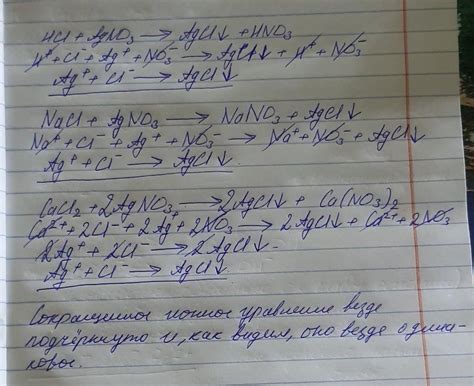 HCl + AgNO₃ → AgCl↓ + HNO₃
H⁺ + Cl⁻ + Ag⁺ + NO₃⁻ → AgCl↓ + H⁺ + NO₃⁻
Ag⁺ + Cl⁻ → AgCl↓
NaCl + AgNO₃ → NaNO₃ + AgCl↓
Na⁺ + Cl⁻ + Ag⁺ + NO₃⁻ → Na⁺ + NO₃⁻ + AgCl↓
Ag⁺ + Cl⁻ → AgCl↓
CaCl₂ + 2AgNO₃ → 2AgCl↓ + Ca(NO₃)₂
Ca²⁺ + 2Cl⁻ + 2Ag⁺ + 2NO₃⁻ → 2AgCl↓ + Ca²⁺ + 2NO₃⁻
2Ag⁺ + 2Cl⁻ → 2AgCl↓
Ag⁺ + Cl⁻ → AgCl↓
Сокращенное ионное уравнение везде
подчёркнуто и, как видим, оно везде одина-
ковое.